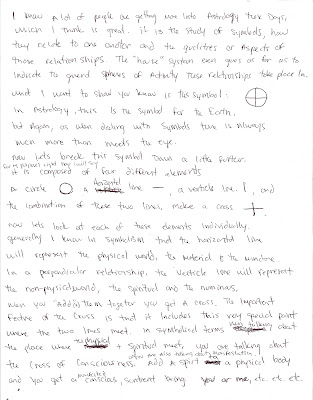 I know a lot of people are getting more into Astrology these Days,
which I think is great. it is the study of symbols, how
they relate to one another and the qualities or Aspects of
those relationships. The "house" system even goes as far as to
indicate the general spheres of Activity these relationships take place in.
what I want to show you know is this symbol:
In Astrology, this is the symbol for the Earth,
but Again, as when dealing with symbols there is always
much more than meets the eye.
now lets break this symbol down a little further.
it is composed of four different elements
A circle a Horizontal line —, a verticle line |, and
the combination of these two lines, make a cross
now lets look at each of these elements individually.
generally I know in symbolism that the horizontal line
will represent the physical world, the material & the mundane
In a perpendicular relationship, the verticle line will represent
the non-physical world, the spiritual and the numinous,
when you "Add" them together you get A cross. The important
feature of the cross is that it includes this very special point
where the two lines meet. in symbolical terms talking about
the place where physical + spiritual meet, you are talking about
you are also talking about manifestation,
the Cross of Consciousness. Add A spirit to a physical body
and you get a manifested conscious, sentient being you or me, etc. etc. etc.